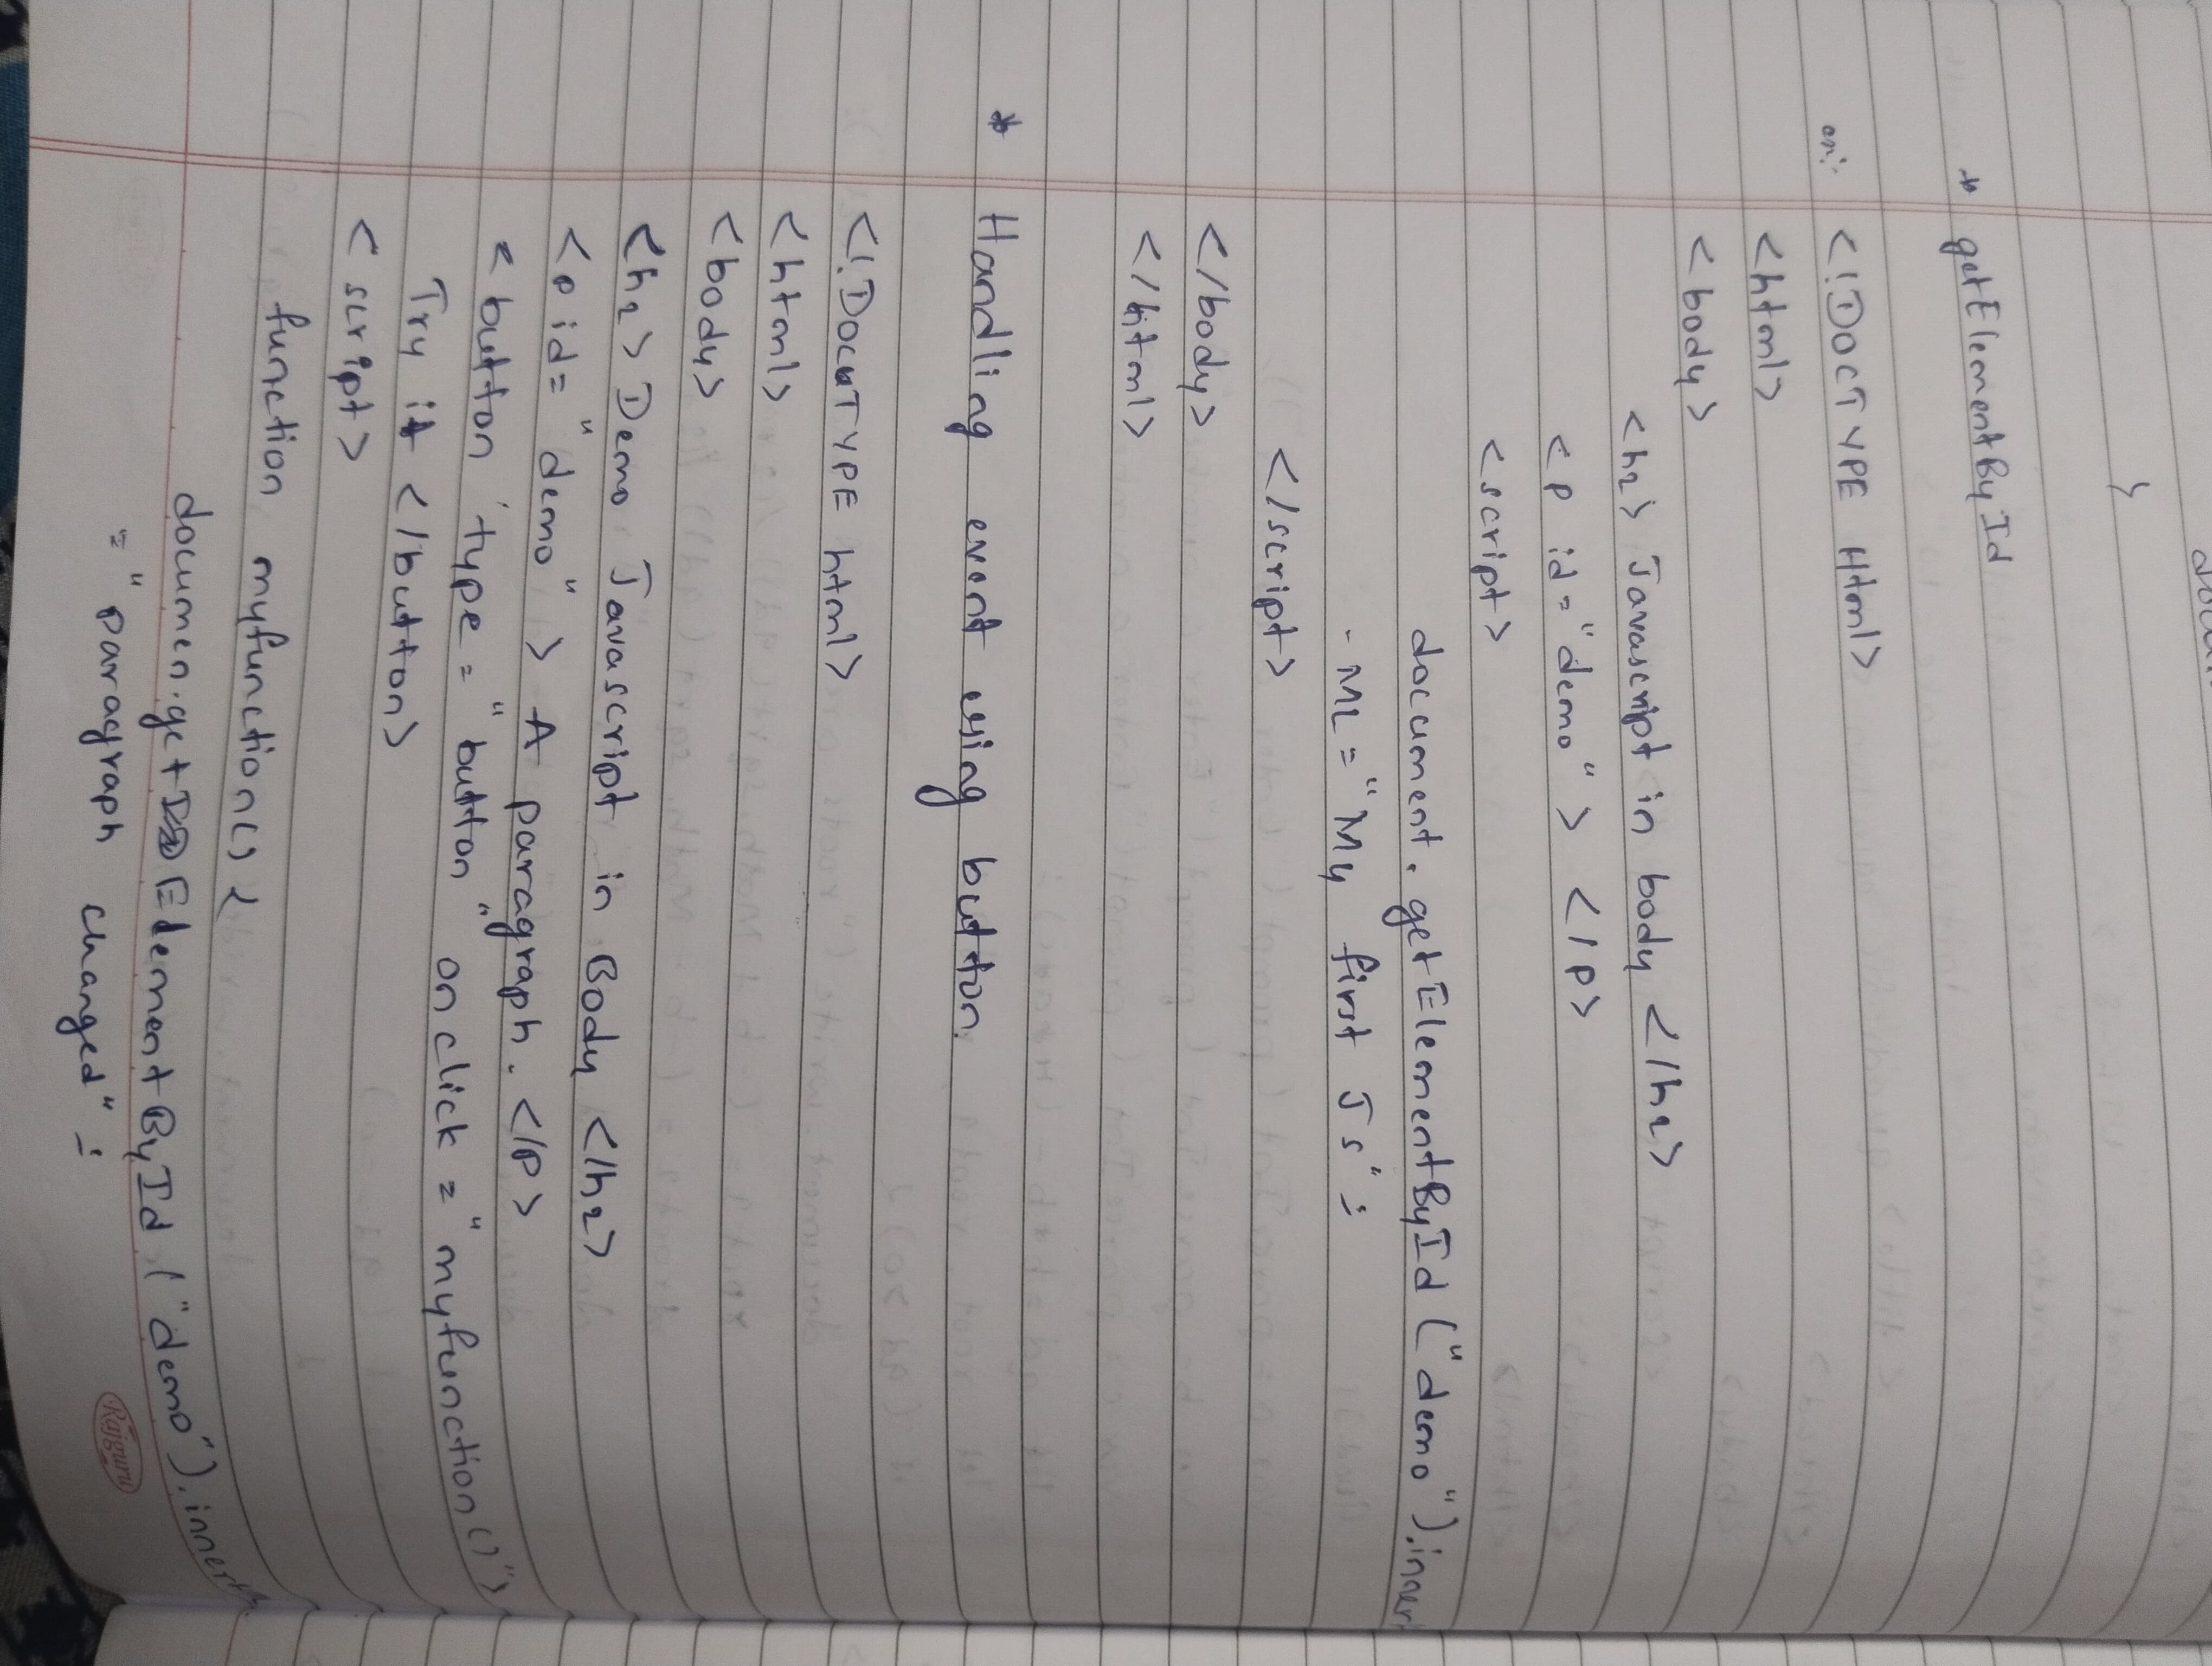 }
* getElementById
ex:- <!DOCTYPE Html>
<html>
<body>
<h2> Javascript in body </h2>
<p id="demo"> </p>
<script>
document.getElementById("demo").inner
- ML = "My first Js";
</script>
</body>
</html>
* Handling event using button.
<!DOCTYPE html>
<html>
<body>
<h2> Demo Javascript in Body </h2>
<p id="demo"> A paragraph. </p>
<button type="button" onclick="myfunction()">
Try it </button>
<script>
function myfunction() {
documen.getElementById("demo").inner
= "paragraph changed";
Rajguru